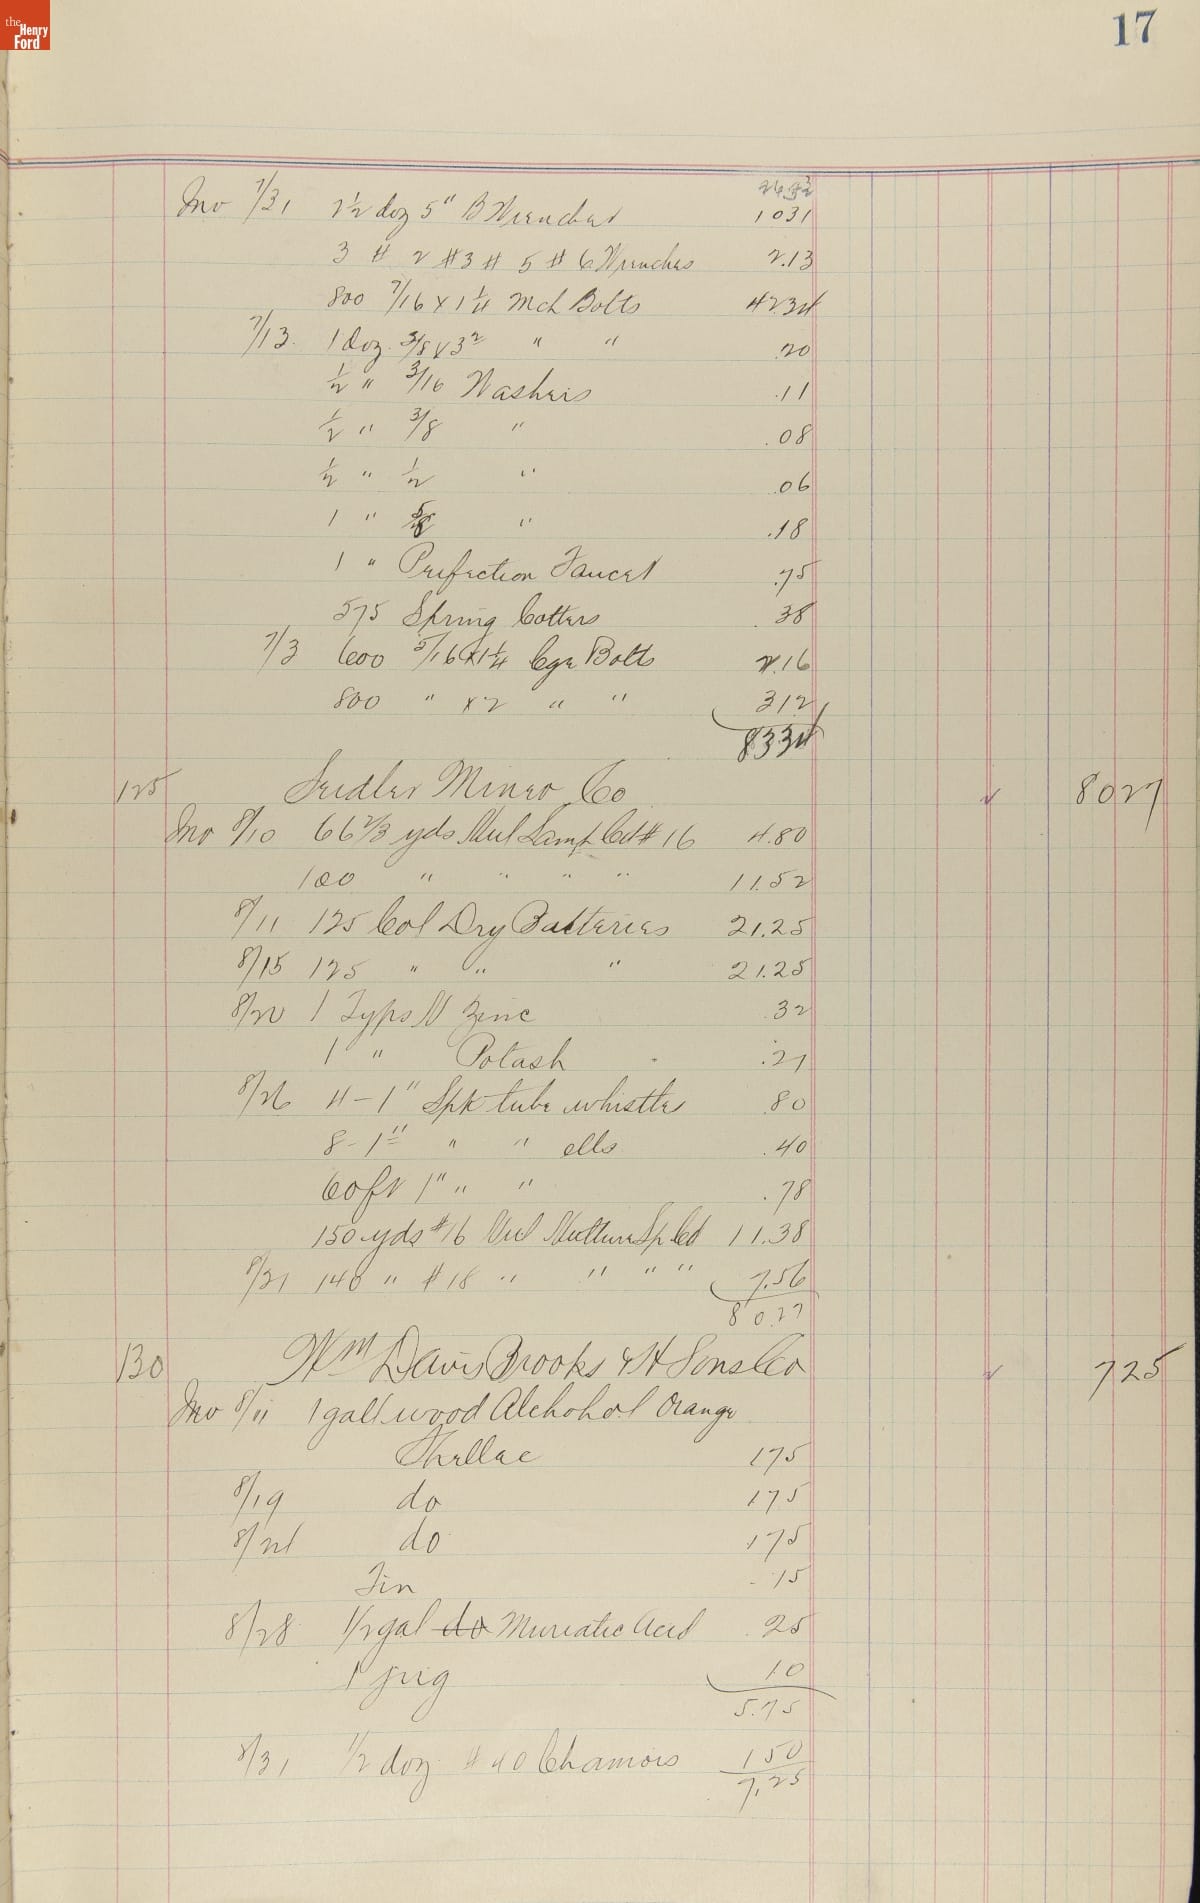 the Henry Ford
17
Inv 7/31 2½ doz 5" B Wrenches 1031
3 # 2 #3 # 5 # 6 Wrenches 2.13
800 7/16 x 1¼ Mch Bolts 42.34
7/13. 1 Doz. 3/8 x 3² " " .20
½ " 3/16 Washers .11
½ " 3/8 " .08
½ " ½ " .06
1 " 5/8 " .18
1 " Perfection Faucet .75
575 Spring Cotters .38
7/3 600 5/16 x 1¼ Cge Bolts 2.16
800 " x 2 " " 312
125 Seidler Miner Co 8027
Inv 8/10 66 2/3 yds Lamp Cd # 16 4.80
100 " " " " 11.52
8/11 125 Col Dry Batteries 21.25
8/15 125 " " " 21.25
8/20 1 Type Zinc .32
1 " Potash .21
8/26 4 - 1" Spk tube whistles .80
8 - 1" " " ells .40
60 ft 1" " " .78
150 yds #16 Sp Cd 11.38
8/21 140 " # 18 " " " " 7.56
80.27
130 Wm Davis Brooks & H Sons Co 725
Inv 8/11 1 gall wood Alchohol Orange
Shellac 175
8/19 do 175
8/21 do 175
Tin .15
8/28 1/2 gal do Muriatic Acid .25
1 jug 10
5.75
8/31 1/2 doz # 40 Chamois 150
7,25